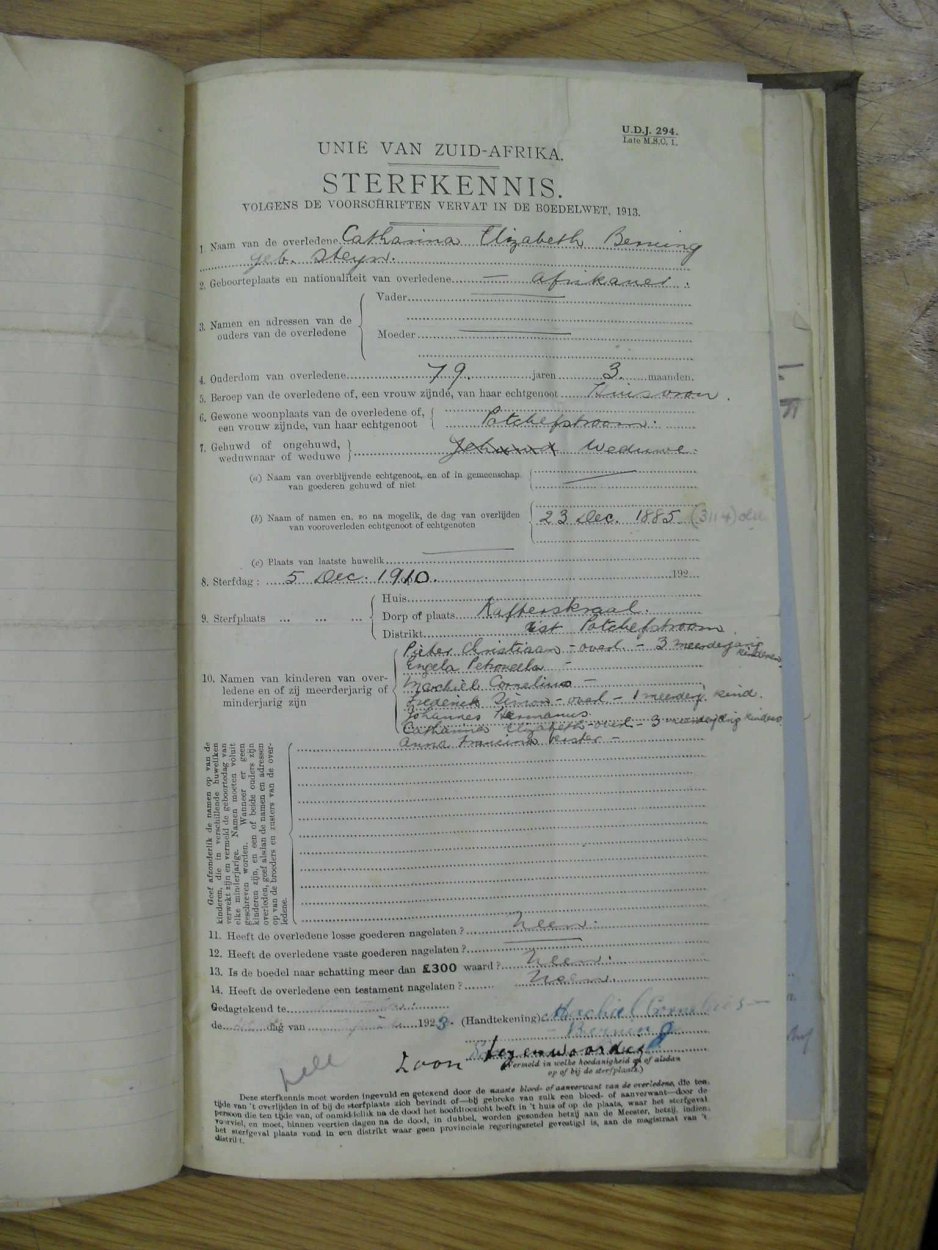 U.D.J. 294.
Late M.S.C. 1.
UNIE VAN ZUID-AFRIKA.
STERFKENNIS.
VOLGENS DE VOORSCHRIFTEN VERVAT IN DE BOEDELWET, 1913.
1. Naam van de overledene Catharina Elizabeth Berning
geb. Steyn.
2. Geboorteplaats en nationaliteit van overledene — Afrikaner.
3. Namen en adressen van de ouders van de overledene
Vader
Moeder
4. Ouderdom van overledene 79 jaren 3 maanden.
5. Beroep van de overledene of, een vrouw zijnde, van haar echtgenoot Huisvrou.
6. Gewone woonplaats van de overledene of, een vrouw zijnde, van haar echtgenoot
Potchefstroom.
7. Gehuwd of ongehuwd, weduwnaar of weduwe
Weduwe.
(a) Naam van overblijvende echtgenoot, en of in gemeenschap van goederen gehuwd of niet
(b) Naam of namen en, zo na mogelik, de dag van overlijden van vooroverleden echtgenoot of echtgenoten
23 Dec. 1885
(c) Plaats van laatste huwelik
8. Sterfdag: 5 Dec. 1910. 192
9. Sterfplaats ... ... ...
Huis
Dorp of plaats Kafferskraal.
Distrikt Potchefstroom.
10. Namen van kinderen van overledene en of zij meerderjarig of minderjarig zijn
Pieter Christiaan – overl – 3 meerderjarig kinderen
Engela Petronella –
Machiel Cornelius –
Frederik Simon – overl – 1 meerderj. kind.
Johannes Hermanus
Catharina Elizabeth – overl – 3 meerderjarig kinders
Anna Francina –
Geef afzonderlik de namen op van de
kinderen, die in verschillende huweliken
verwekt zijn en vermeld de geboortedag van
elke minderjarige. Namen moeten voluit
geschreven worden. Wanneer er geen
kinderen zijn, en een of beide ouders zijn
overleden, geef alsdan de namen en adressen
op van de broeders en zusters van de overledene.
11. Heeft de overledene losse goederen nagelaten? Neen.
12. Heeft de overledene vaste goederen nagelaten?
13. Is de boedel naar schatting meer dan £300 waard? Neen.
14. Heeft de overledene een testament nagelaten? Neen
Gedagtekend te
de dag van 1923. (Handtekening) Machiel Cornelius
Berning
Zoon tegenwoordig
(Vermeld in welke hoedanigheid en of aldan
op of bij de sterfplaats.)
Deze sterfkennis moet worden ingevuld en getekend door de naaste bloed- of aanverwant van de overledene, die ten
tijde van 't overlijden in of bij de sterfplaats zich bevindt of—bij gebreke van zulk een bloed- of aanverwant—door de
persoon die ten tijde van, of onmiddellik na de dood het hoofdtoezicht heeft in 't huis of op de plaats, waar het sterfgeval
voorviel, en moet, binnen veertien dagen na de dood, in dubbel, worden gezonden hetzij aan de Meester, hetzij, indien
het sterfgeval plaats vond in een distrikt waar geen provinciale regeringszetel gevestigd is, aan de magistraat van 't
distrikt.